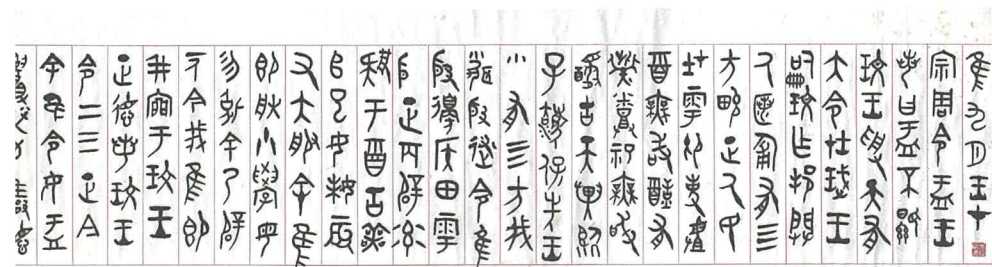 隹九月王才
宗周令盂王
若曰盂不顯
玟王受天有
大令在珷王
嗣玟乍邦闢
厥匿匍有亖
方畯正厥民
在雩御事𠭯
酉無敢酖有
祡蒸祀無敢
醻古天異臨
子法保先王
有亖方我
聞殷述令隹
殷邊侯田雩
殷正百辟率
肄于酉古喪
𠂤巳女妹辰
又大服余隹
即朕小學女
勿剋余乃辟
一人今我隹即
井㐭于玟王
正德若玟王
令二三正今
余隹令女盂